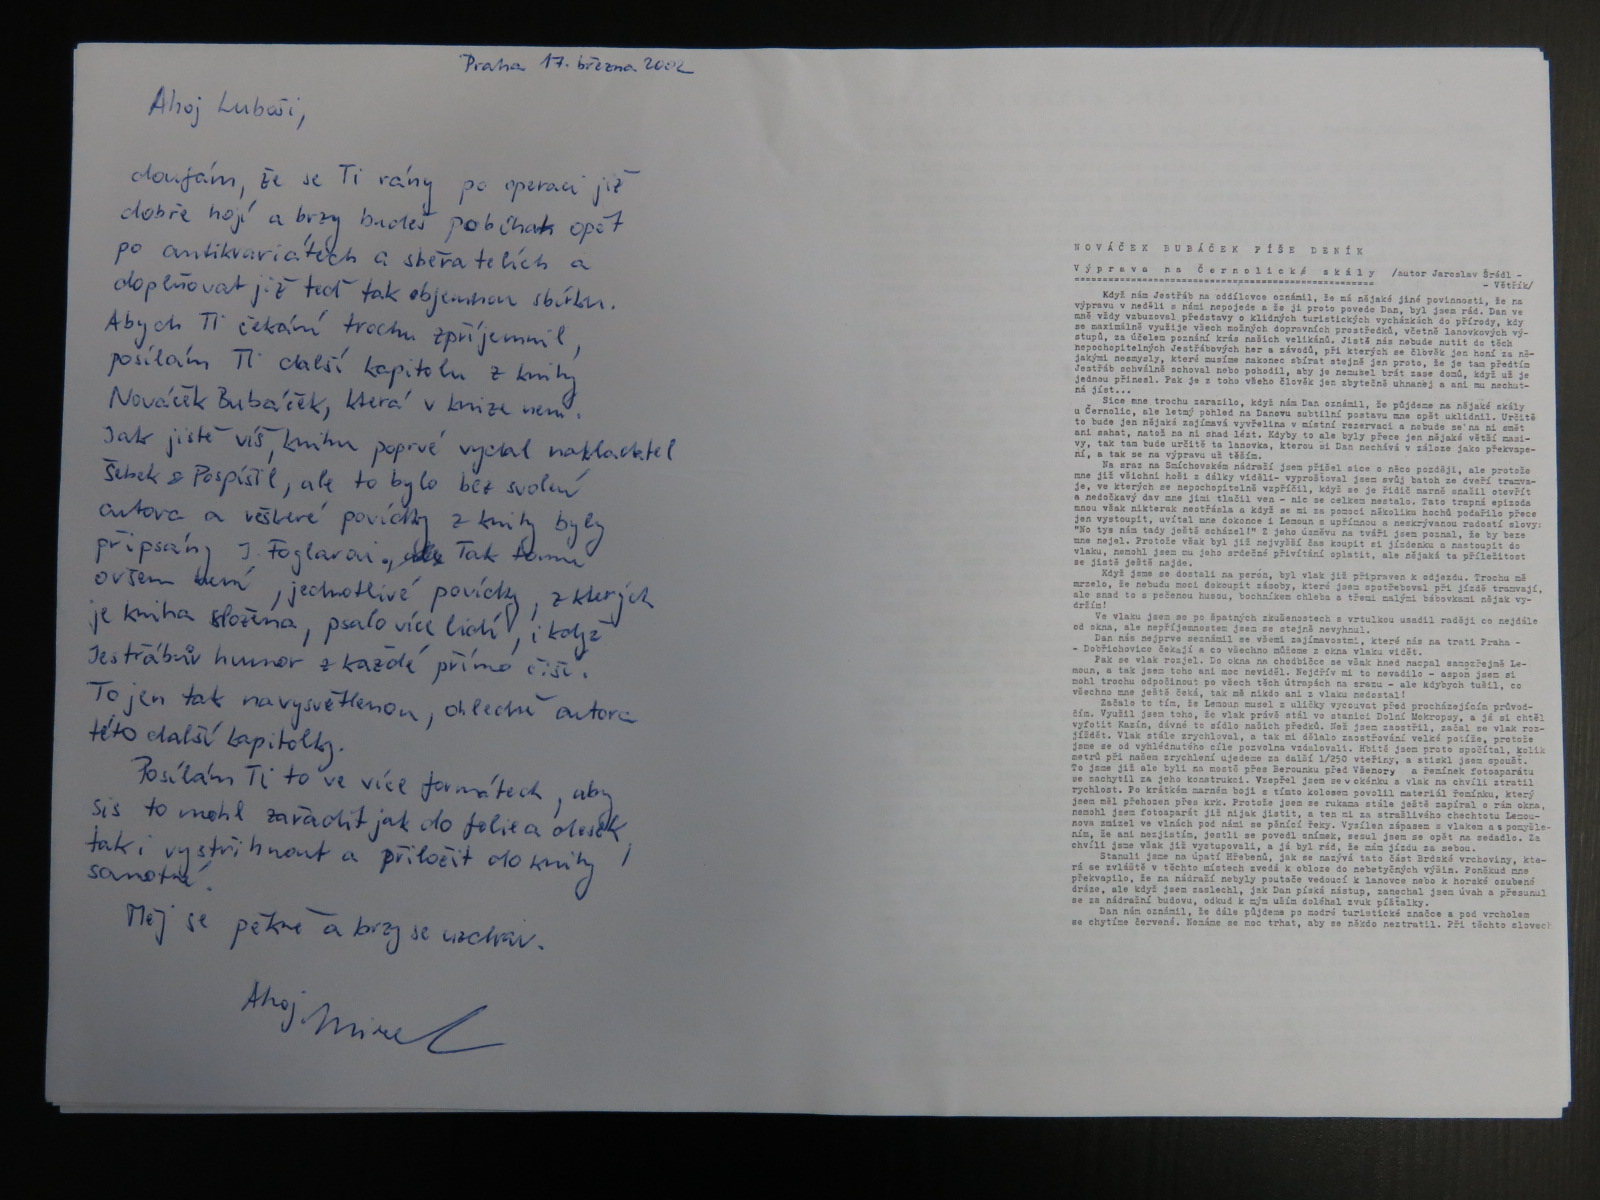 Praha 17. března 2002
Ahoj Luboši,
doufám, že se Ti rány po operaci již
dobře hojí a brzy budeš pobíhat opět
po antikvariátech a sběratelích a
doplňovat již teď tak objemnou sbírku.
Abych Ti čekání trochu zpříjemnil,
posílám Ti další kapitolu z knihy
Nováček Bubáček, která v knize není.
Jak jistě víš, knihu poprvé vydal nakladatel
Šebek & Pospíšil, ale to bylo bez svolení
autora a veškeré povídky z knihy byly
připsány J. Foglarovi, Tak tomu
ovšem není, jednotlivé povídky, z kterých
je kniha složena, psalo více lidí, i když
Jestřábův humor z každé přímo čiší.
To jen tak na vysvětlenou, ohledně autora
této další kapitolky.
Posílám Ti to ve více formátech, aby
sis to mohl zařadit jak do folie a desek,
tak i vystřihnout a přiložit do knihy
samotné.
Měj se pěkně a brzy se uzdrav.
Ahoj Mirek
NOVÁČEK BUBÁČEK PÍŠE DENÍK
Výprava na Černolické skály /autor Jaroslav Šrédl -
- Větřík/
Když nám Jestřáb na oddílovce oznámil, že má nějaké jiné povinnosti, že na
výpravu v neděli s námi nepojede a že ji proto povede Dan, byl jsem rád. Dan ve
mně vždy vzbuzoval představy o klidných turistických vycházkách do přírody, kdy
se maximálně využije všech možných dopravních prostředků, včetně lanovkových vý-
stupů, za účelem poznání krás našich velikánů. Jistě nás nebude nutit do těch
nepochopitelných Jestřábových her a závodů, při kterých se člověk jen honí za ně-
jakými nesmysly, které musíme nakonec sbírat stejně jen proto, že je tam předtím
Jestřáb schválně schoval nebo pohodil, aby je nemusel brát zase domů, když už je
jednou přinesl. Pak je z toho všeho člověk jen zbytečně uhnanej a ani mu nechut-
ná jíst...
Sice mne trochu zarazilo, když nám Dan oznámil, že půjdeme na nějaké skály
u Černolic, ale letmý pohled na Danovu subtilní postavu mne opět uklidnil. Určitě
to bude jen nějaká zajímavá vyvřelina v místní rezervaci a nebude se na ni smět
ani sahat, natož na ni snad lézt. Kdyby to ale byly přece jen nějaké větší masi-
vy, tak tam bude určitě ta lanovka, kterou si Dan nechává v záloze jako překvape-
ní, a tak se na výpravu už těším.
Na sraz na Smíchovském nádraží jsem přišel sice o něco později, ale protože
mne již všichni hoši z dálky viděli- vyprošťoval jsem svůj batoh ze dveří tramva-
je, ve kterých se nepochopitelně vzpříčil, když se je řidič marně snažil otevřít
a nedočkavý dav mne jimi tlačil ven - nic se celkem nestalo. Tato trapná epizoda
mnou však nikterak neotřásla a když se mi za pomoci několika hochů podařilo přece
jen vystoupit, uvítal mne dokonce i Lemoun s upřímnou a neskrývanou radostí slovy:
"No tys nám tady ještě scházel!" Z jeho úsměvu na tváři jsem poznal, že by beze
mne nejel. Protože však byl již nejvyšší čas koupit si jízdenku a nastoupit do
vlaku, nemohl jsem mu jeho srdečné přivítání oplatit, ale nějaká ta příležitost
se jistě ještě najde.
Když jsme se dostali na perón, byl vlak již připraven k odjezdu. Trochu mě
mrzelo, že nebudu moci dokoupit zásoby, které jsem spotřeboval při jízdě tramvají,
ale snad to s pečenou husou, bochníkem chleba a třemi malými bábovkami nějak vy-
držím!
Ve vlaku jsem se po špatných zkušenostech s vrtulkou usadil raději co nejdále
od okna, ale nepříjemnostem jsem se stejně nevyhnul.
Dan nás nejprve seznámil se všemi zajímavostmi, které nás na trati Praha -
- Dobřichovice čekají a co všechno můžeme z okna vlaku vidět.
Pak se vlak rozjel. Do okna na chodbičce se však hned nacpal samozřejmě Le-
moun, a tak jsem toho ani moc neviděl. Nejdřív mi to nevadilo - aspoň jsem si
mohl trochu odpočinout po všech těch útrapách na srazu - ale kdybych tušil, co
všechno mne ještě čeká, tak mě nikdo ani z vlaku nedostal!
Začalo to tím, že Lemoun musel z uličky vycouvat před procházejícím průvod-
čím. Využil jsem toho, že vlak právě stál ve stanici Dolní Mokropsy, a já si chtěl
vyfotit Kazín, dávné to sídlo našich předků. Než jsem zaostřil, začal se vlak roz-
jíždět. Vlak stále zrychloval, a tak mi dělalo zaostřování velké potíže, protože
jsme se od vyhlédnutého cíle pozvolna vzdalovali. Hbitě jsem proto spočítal, kolik
metrů při našem zrychlení ujedeme za další 1/250 vteřiny, a stiskl jsem spoušť.
To jsme již ale byli na mostě přes Berounku před Všenory a řemínek fotoaparátu
se zachytil za jeho konstrukci. Vzepřel jsem se v okénku a vlak na chvíli ztratil
rychlost. Po krátkém marném boji s tímto kolosem povolil materiál řemínku, který
jsem měl přehozen přes krk. Protože jsem se rukama stále ještě zapíral o rám okna,
nemohl jsem fotoaparát již nijak jistit, a ten mi za strašlivého chechtotu Lemou-
nova zmizel ve vlnách pod námi se pěnící řeky. Vysílen zápasem s vlakem a s pomyšle-
ním, že ani nezjistím, jestli se povedl snímek, sesul jsem se opět na sedadlo. Za
chvíli jsme však již vystupovali, a já byl rád, že mám jízdu za sebou.
Stanuli jsme na úpatí Hřebenů, jak se nazývá tato část Brdské vrchoviny, kte-
rá se zvláště v těchto místech zvedá k obloze do nebetyčných výšin. Poněkud mne
překvapilo, že na nádraží nebyly poutače vedoucí k lanovce nebo k horské ozubené
dráze, ale když jsem zaslechl, jak Dan píská nástup, zanechal jsem úvah a přesunul
se za nádražní budovu, odkud k mým uším doléhal zvuk píšťalky.
Dan nám oznámil, že dále půjdeme po modré turistické značce a pod vrcholem
se chytíme červené. Nemáme se moc trhat, aby se někdo neztratil. Při těchto slovech